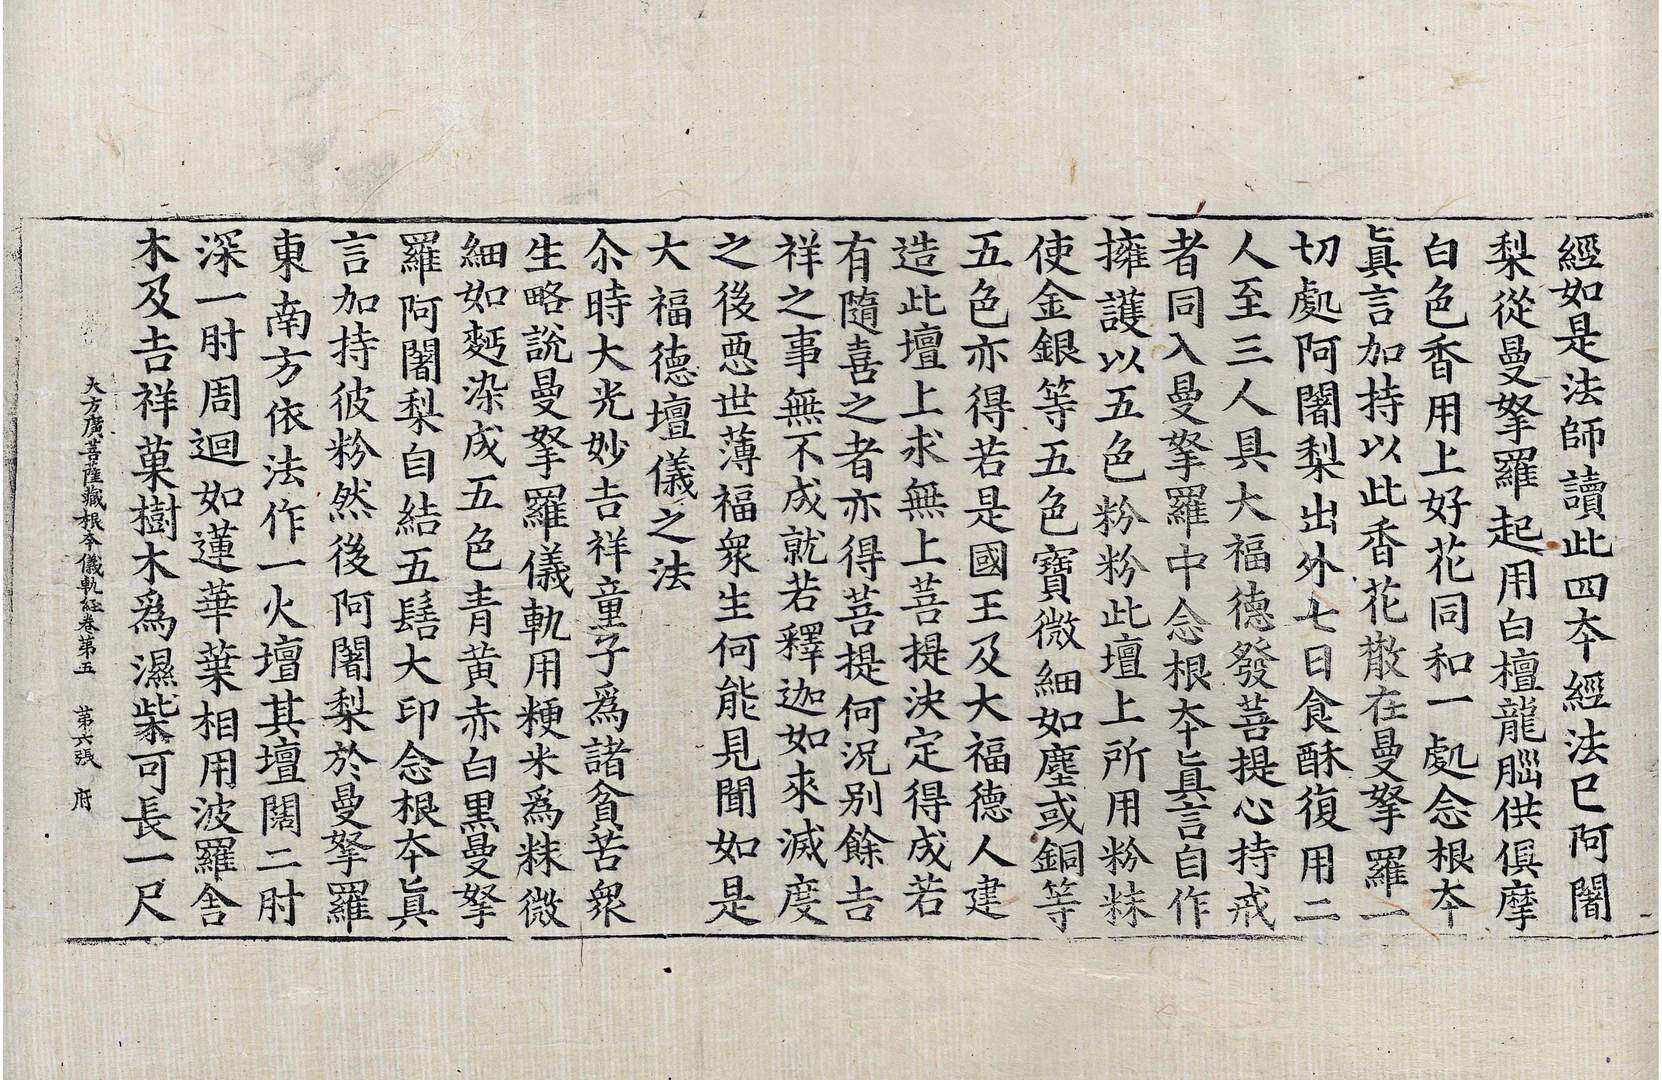 經如是法師讀此四夲經法已阿闍
梨從曼拏羅起用白檀龍腦供俱摩
白色香用上好花同和一處念根夲
眞言加持以此香花散在曼拏羅一
切處阿闍梨出外七日食酥復用二
人至三人具大福德發菩提心持戒
者同入曼拏羅中念根夲眞言自作
擁護以五色粉粉此壇上所用粉粖
使金銀等五色寶微細如塵或銅等
五色亦得若是國王及大福德人建
造此壇上求無上菩提決定得成若
有隨喜之者亦得菩提何況別餘吉
祥之事無不成就若釋迦如來滅度
之後惡世薄福衆生何能見聞如是
大福德壇儀之法
尒時大光妙吉祥童子爲諸貧苦衆
生略說曼拏羅儀軌用粳米爲粖微
細如麪染成五色青黃赤白黑曼拏
羅阿闍梨自結五髻大印念根夲眞
言加持彼粉然後阿闍梨於曼拏羅
東南方依法作一火壇其壇闊二肘
深一肘周迴如蓮華葉相用波羅舍
木及吉祥菓樹木爲濕柴可長一尺
大方廣菩薩藏根夲儀軌經卷第五　第六張　府